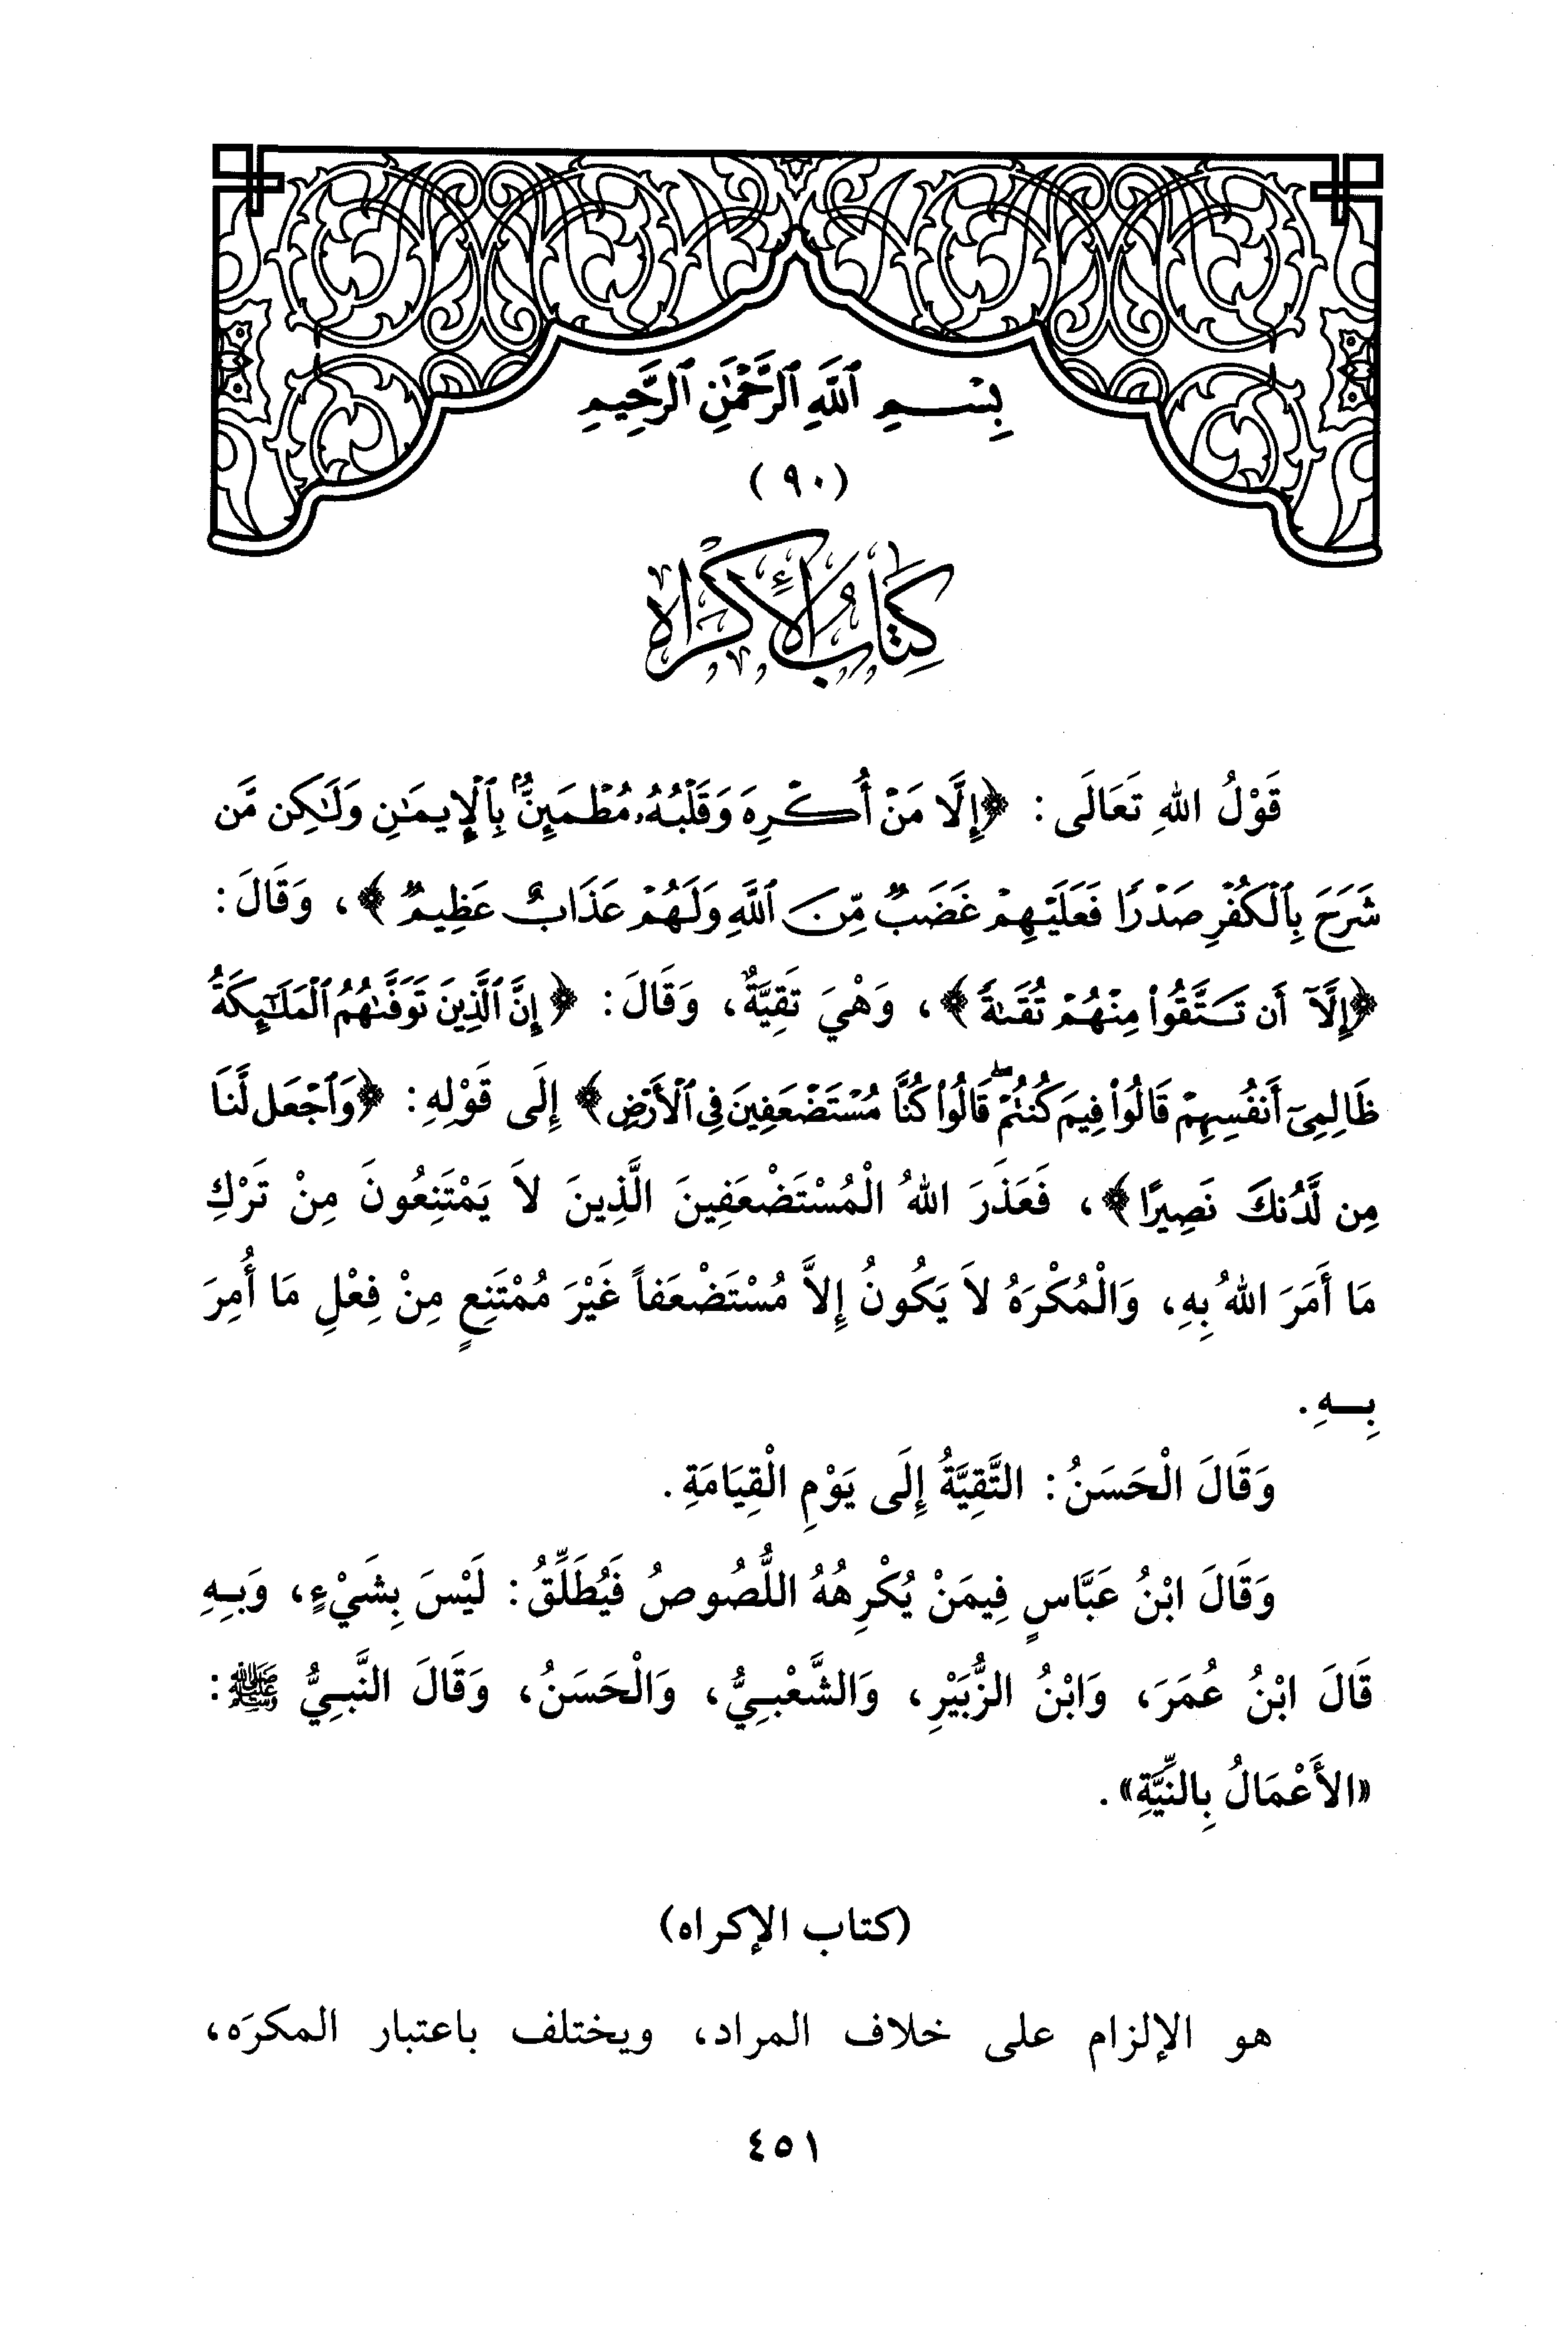 بِسْمِ ٱللَّهِ ٱلرَّحْمَٰنِ ٱلرَّحِيمِ
(٩٠)
كِتَابُ الإِكْرَاهِ
قَوْلُ اللهِ تَعَالَى: ﴿إِلَّا مَنْ أُكْرِهَ وَقَلْبُهُۥ مُطْمَئِنٌّۢ بِٱلْإِيمَٰنِ وَلَٰكِن مَّن
شَرَحَ بِٱلْكُفْرِ صَدْرًا فَعَلَيْهِمْ غَضَبٌ مِّنَ ٱللَّهِ وَلَهُمْ عَذَابٌ عَظِيمٌ﴾، وَقَالَ:
﴿إِلَّآ أَن تَتَّقُوا۟ مِنْهُمْ تُقَىٰةً﴾، وَهْيَ تَقِيَّةٌ، وَقَالَ: ﴿إِنَّ ٱلَّذِينَ تَوَفَّىٰهُمُ ٱلْمَلَٰٓئِكَةُ
ظَالِمِىٓ أَنفُسِهِمْ قَالُوا۟ فِيمَ كُنتُمْ ۖ قَالُوا۟ كُنَّا مُسْتَضْعَفِينَ فِى ٱلْأَرْضِ﴾ إِلَى قَوْلِهِ: ﴿وَٱجْعَل لَّنَا
مِن لَّدُنكَ نَصِيرًا﴾، فَعَذَرَ اللهُ الْمُسْتَضْعَفِينَ الَّذِينَ لاَ يَمْتَنِعُونَ مِنْ تَرْكِ
مَا أَمَرَ اللهُ بِهِ، وَالْمُكْرَهُ لاَ يَكُونُ إِلاَّ مُسْتَضْعَفاً غَيْرَ مُمْتَنِعٍ مِنْ فِعْلِ مَا أُمِرَ
بِهِ.
وَقَالَ الْحَسَنُ: التَّقِيَّةُ إِلَى يَوْمِ الْقِيَامَةِ.
وَقَالَ ابْنُ عَبَّاسٍ فِيمَنْ يُكْرِهُهُ اللُّصُوصُ فَيُطَلِّقُ: لَيْسَ بِشَيْءٍ، وَبِهِ
قَالَ ابْنُ عُمَرَ، وَابْنُ الزُّبَيْرِ، وَالشَّعْبِيُّ، وَالْحَسَنُ، وَقَالَ النَّبِيُّ ﷺ:
«الأَعْمَالُ بِالنِّيَّةِ».
(كتاب الإكراه)
هو الإلزام على خلاف المراد، ويختلف باعتبار المكرَه،
٤٥١